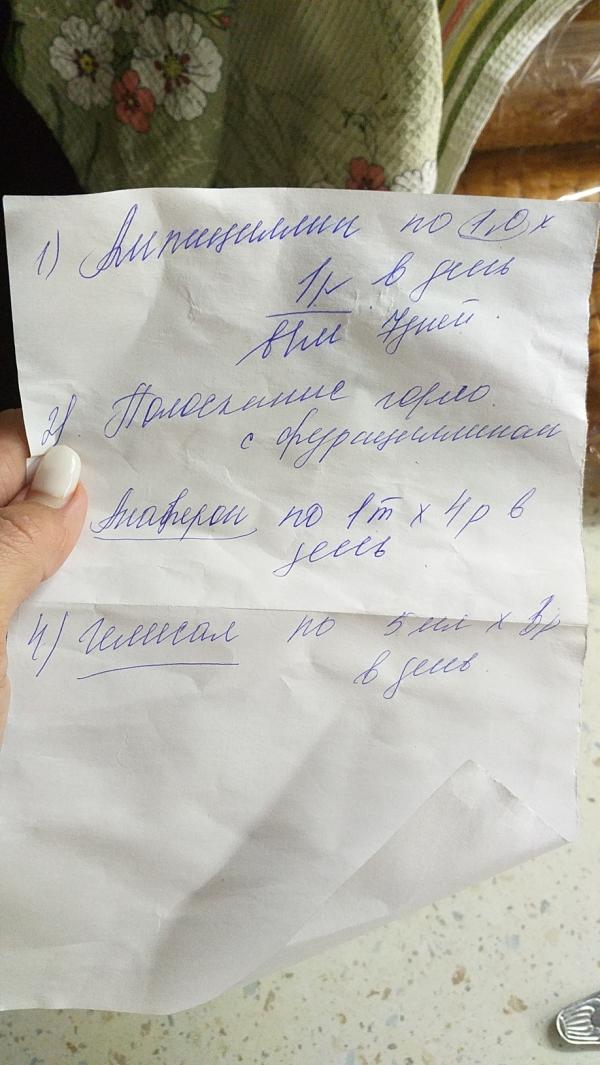 1) Ампициллин по 1,0 х
1р в день
в/м 7 дней.
2). Полоскание горло
с фурациллином
Анаферон по 1т х 4р в
день
4) Гелисал по 5 мл х
в день.